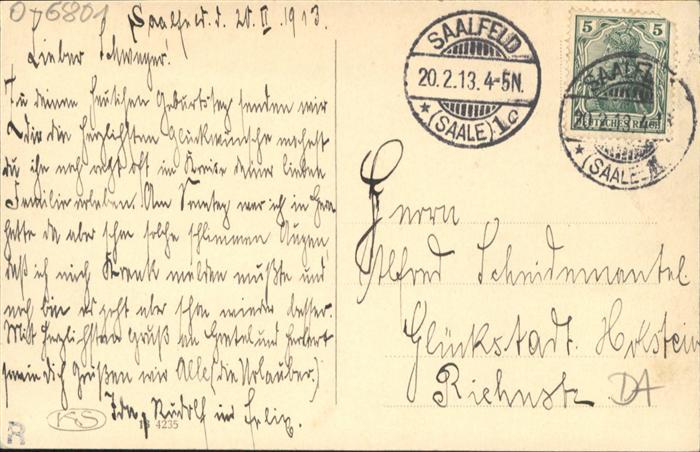 0-6801
Saalfeld. d. 20. II. 1913.
Lieber Schwager!
Zu deinem heutigen Geburtstag senden wir
Dir die herzlichsten Glückwünsche mögest
du ihn noch recht oft im Kreise deiner lieben
Familie erleben. Am Sonntag war ich in
hatte da aber schon solche schlimmen Augen,
daß ich mich Krank melden mußte und
noch bin es geht aber schon wieder besser.
Mit herzlichsten Gruß an Gretel und Herbert
dich Grüßen wir Alle (die Urlauber.)
Ida, Rudolf und Felix.
KS
4235
R
SAALFELD
20.2.13. 4-5N.
* (SAALE) 1c
5 5
DEUTSCHES REICH
SAALFELD
20.2.13. 4-5N.
* (SAALE)
Herrn
Alfred Scheidemantel
Glückstadt. Holstein
DA